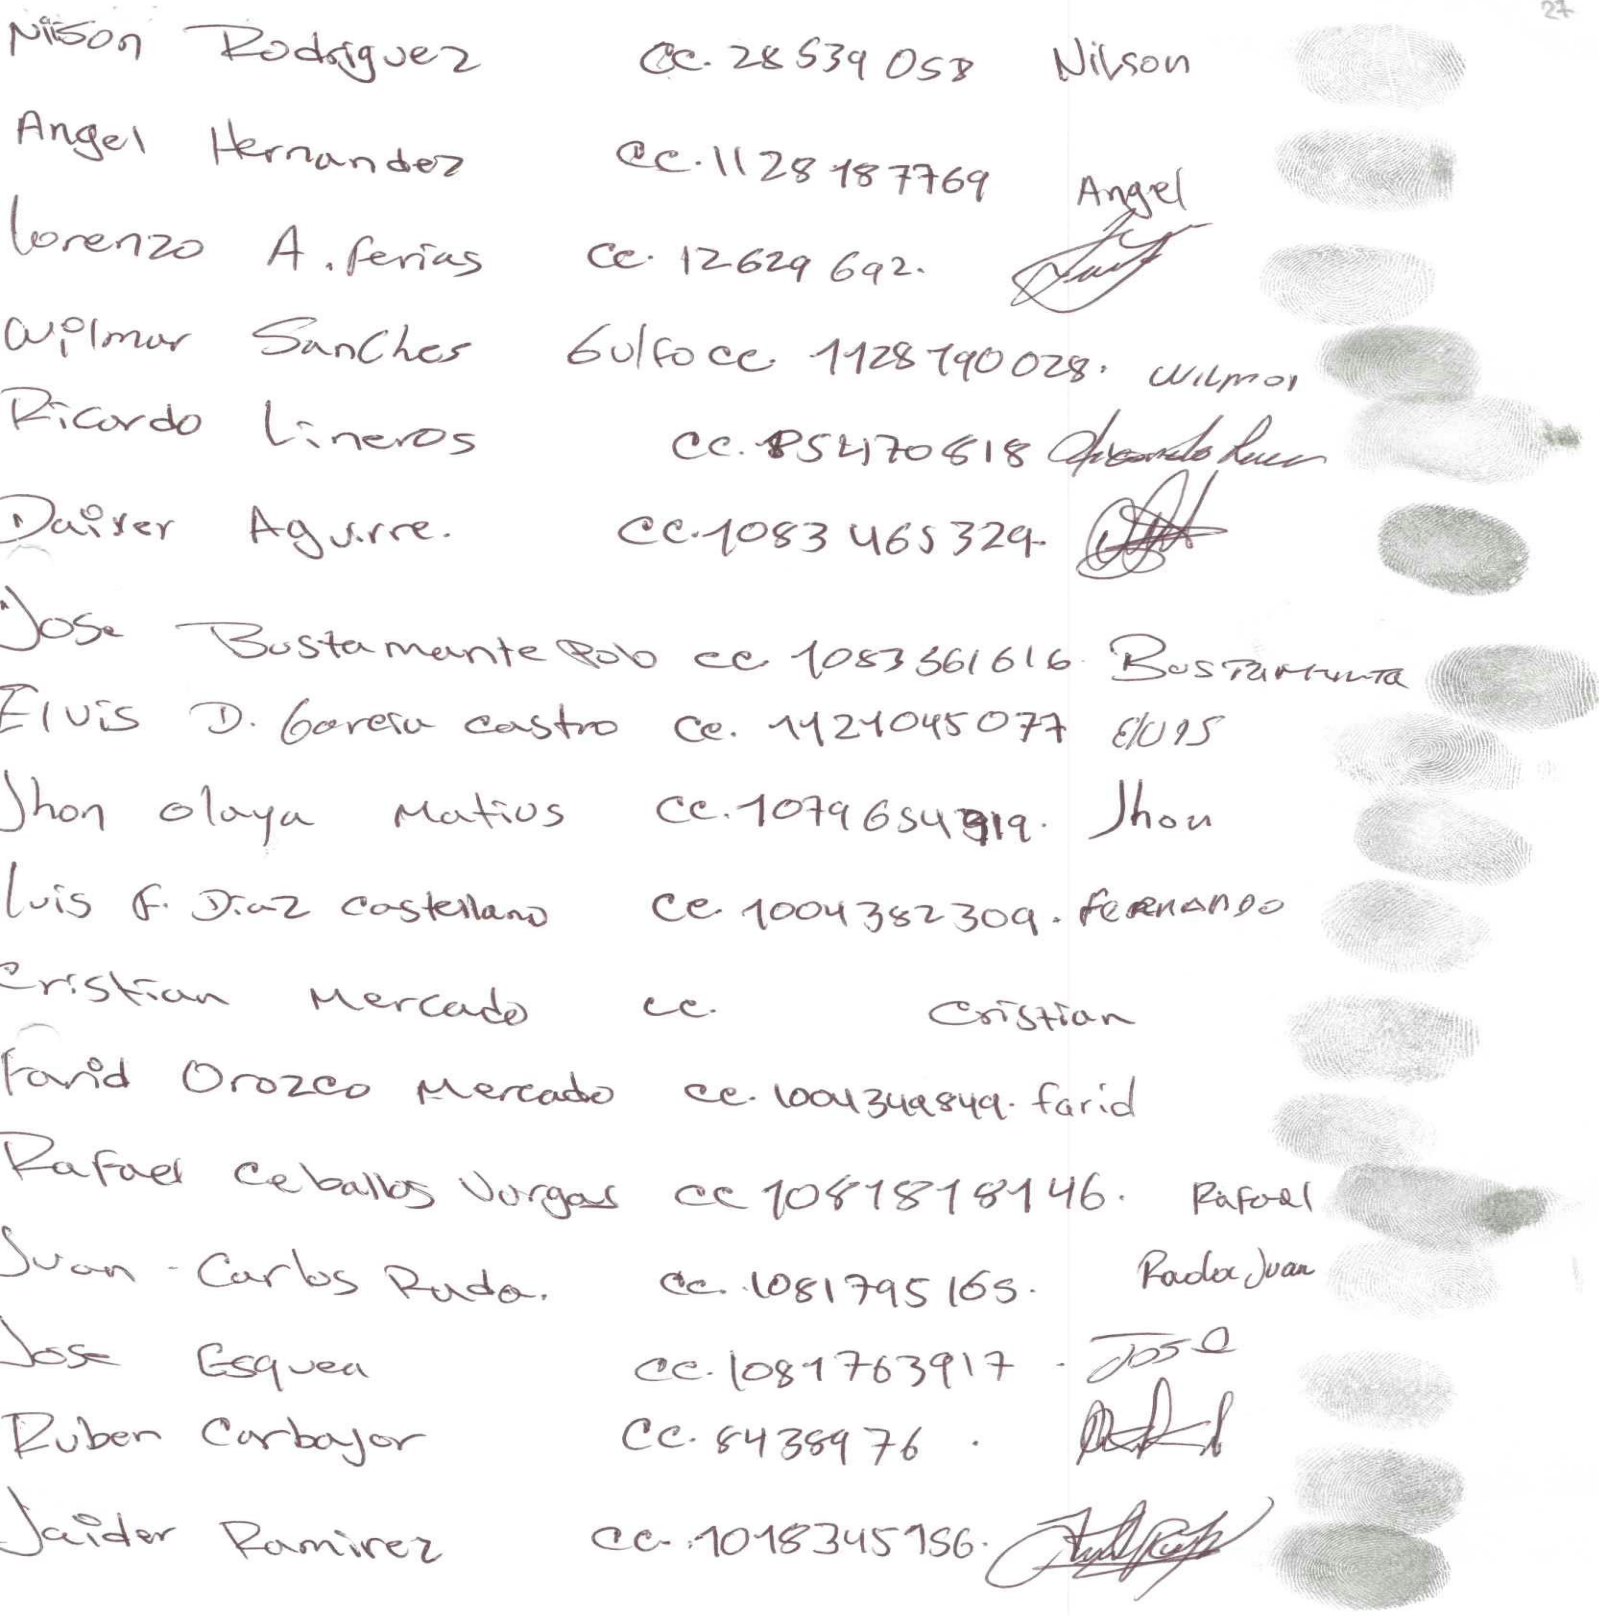 27
Nilson Rodriguez CC. 28539058 Nilson
Angel Hernandez CC. 1128187769 Angel
Lorenzo A. ferias CC. 12629692.
Wilmar Sanches Gulfo CC. 1128190028. Wilmar
Ricardo Lineros CC. 85470618
Daiver Aguirre. CC. 1083465329.
Jose Bustamante Pob CC 1083561616. Bustamanta
Elvis D. Garcia Castro CC. 1121045077 Elvis
Jhon Olaya Matius CC. 1079654919. Jhon
Luis F. Diaz Castellano CC. 1004382309. FERNANDO
Cristian Mercado CC. Cristian
Farid Orozco Mercado CC. 1004349849. farid
Rafael Ceballos Vargas CC 1081818146. Rafael
Juan - Carlos Rada. CC. 1081795165. Rada Juan
Jose Esquea CC. 1081763917. Jose
Ruben Carbajar CC. 8438976.
Jaider Ramirez CC. 1018345156.